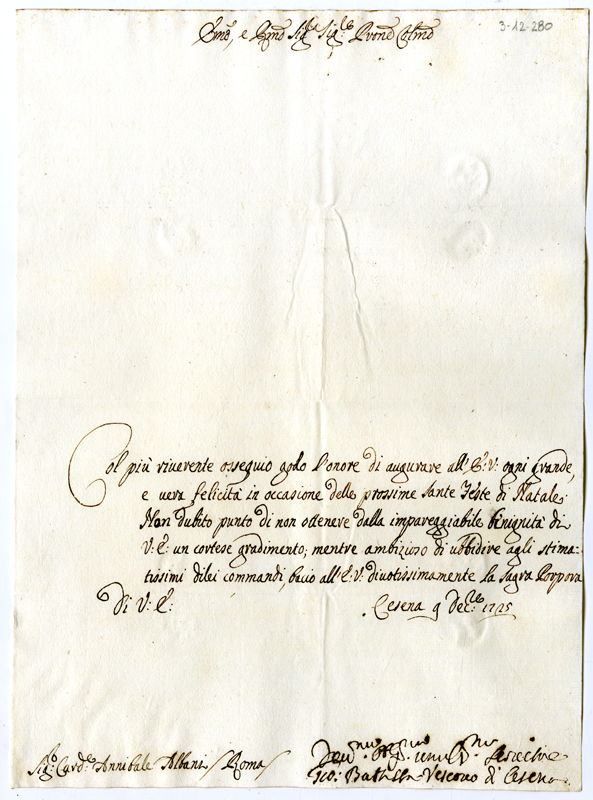 3-12-280
Emō, e Rmō Sigre Sigre Pronē Colmō
Col più riverente ossequio godo l'onore di augurare all'E: V: ogni grande,
e vera felicità in occasione delle prossime Sante Feste di Natale.
Non dubito punto di non ottenere dalla impareggiabile benignità di
V: E: un cortese gradimento; mentre ambizioso di ubbidire agli stima-
tissimi di lei commandi, bacio all'E: V: divotissimamente la Sagra Porpora
Di V: E:
Cesena 9 Decre: 1725
Sigr Cardle Annibale Albani / Roma /
Gio: Battista Vescovo di Cesena